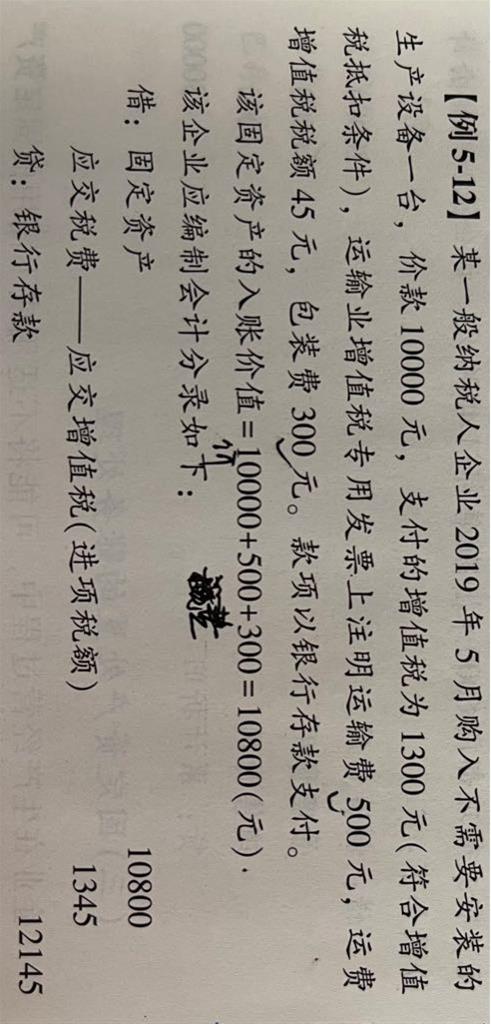 【例5-12】 某一般纳税人企业2019年5月购入不需要安装的
生产设备一台，价款10000元，支付的增值税为1300元(符合增值
税抵扣条件)，运输业增值税专用发票上注明运输费500元，运费
增值税税额45元，包装费300元。款项以银行存款支付。
该固定资产的入账价值=10000+500+300=10800(元)．
该企业应编制会计分录如下：
借：固定资产 10800
应交税费——应交增值税(进项税额) 1345
贷：银行存款 12145